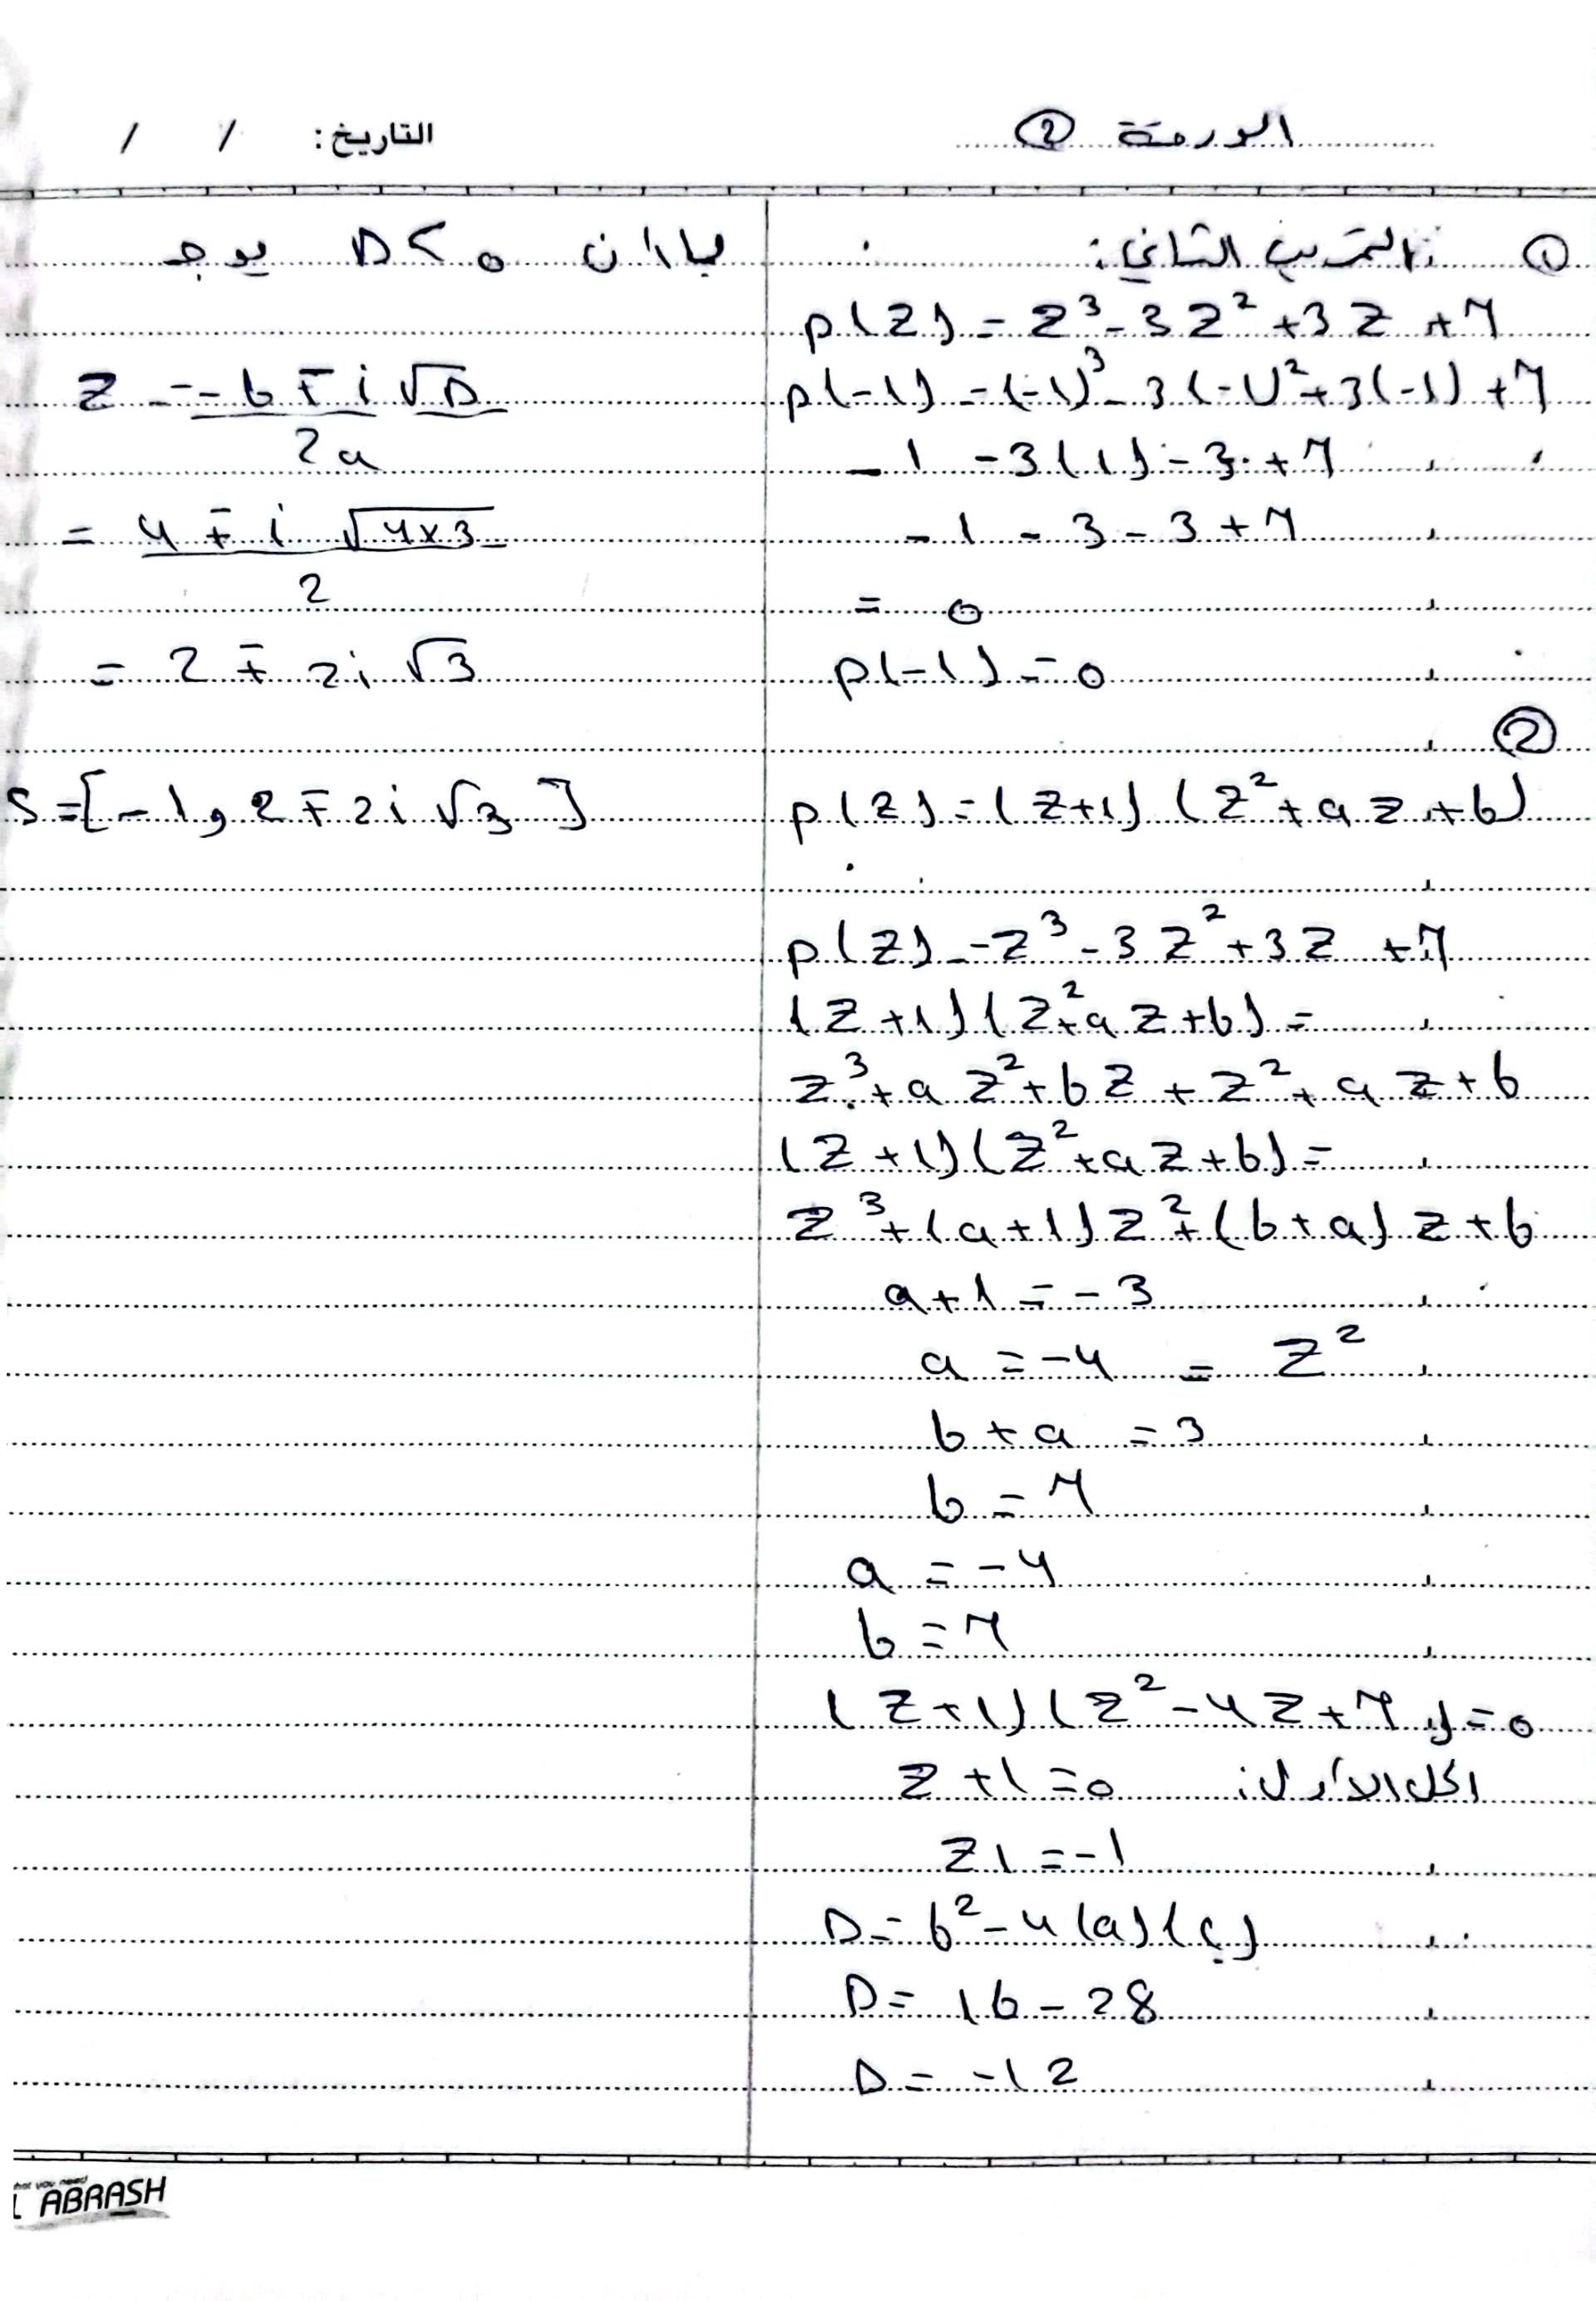 الورقة ②
التاريخ: / /
① التمرين الثاني:
p(z) = z³ - 3z² + 3z + 7
p(-1) = (-1)³ - 3(-1)² + 3(-1) + 7
-1 - 3(1) - 3 + 7
-1 - 3 - 3 + 7
= 0
p(-1) = 0
②
p(z) = (z+1)(z² + az + b)
p(z) = z³ - 3z² + 3z + 7
(z+1)(z² + az + b) =
z³ + az² + bz + z² + az + b
(z+1)(z² + az + b) =
z³ + (a+1)z² + (b+a)z + b
a+1 = -3
a = -4 = z²
b + a = 3
b = 7
a = -4
b = 7
(z+1)(z² - 4z + 7) = 0
الحل الأول: z + 1 = 0
z1 = -1
D = b² - 4(a)(c)
D = 16 - 28
D = -12
بما ان D < 0 يوجد
z = -b ∓ i√D
2a
= 4 ∓ i √4×3
2
= 2 ∓ 2i √3
S = [-1, 2 ∓ 2i √3]
that you need
ABRASH